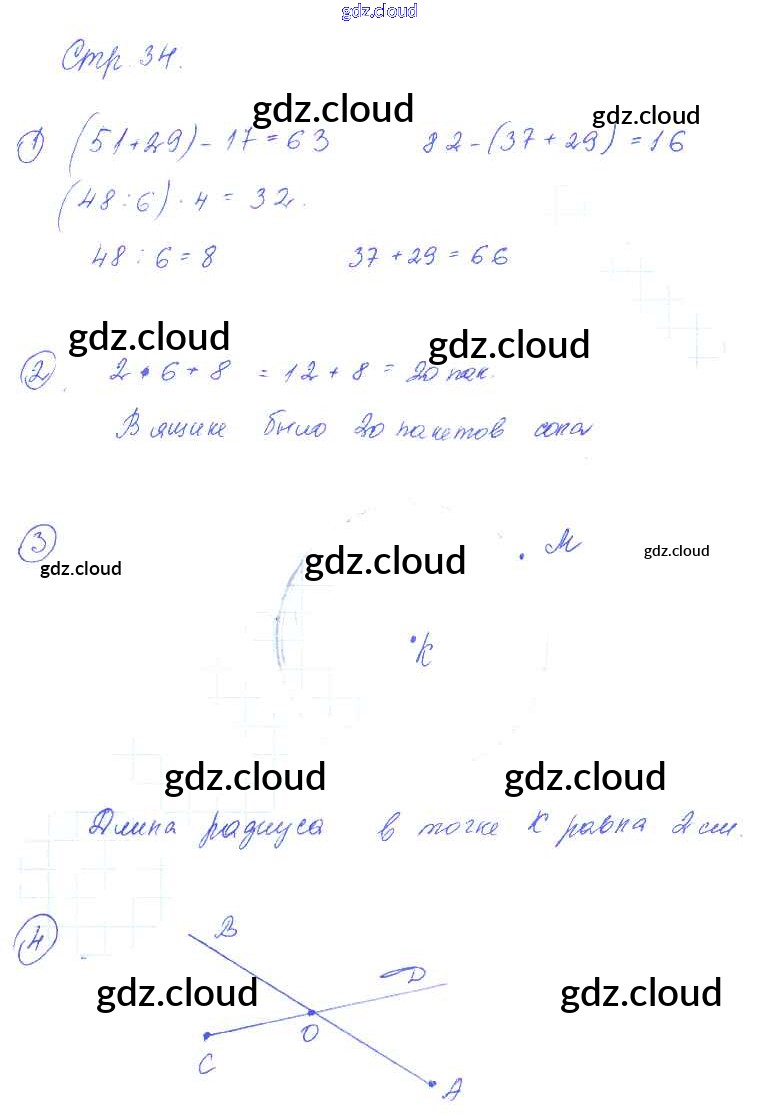 gdz.cloud
Стр. 34.
gdz.cloud gdz.cloud
1 (51+29)-17=63 82-(37+29)=16
(48:6)·4=32.
48:6=8 37+29=66
gdz.cloud gdz.cloud
2 2·6+8=12+8=20 пак.
В ящике было 20 пакетов сока
3 gdz.cloud gdz.cloud М gdz.cloud
К
gdz.cloud gdz.cloud
Длина радиуса в точке К равна 2 см.
4 В
gdz.cloud D gdz.cloud
О
С
А